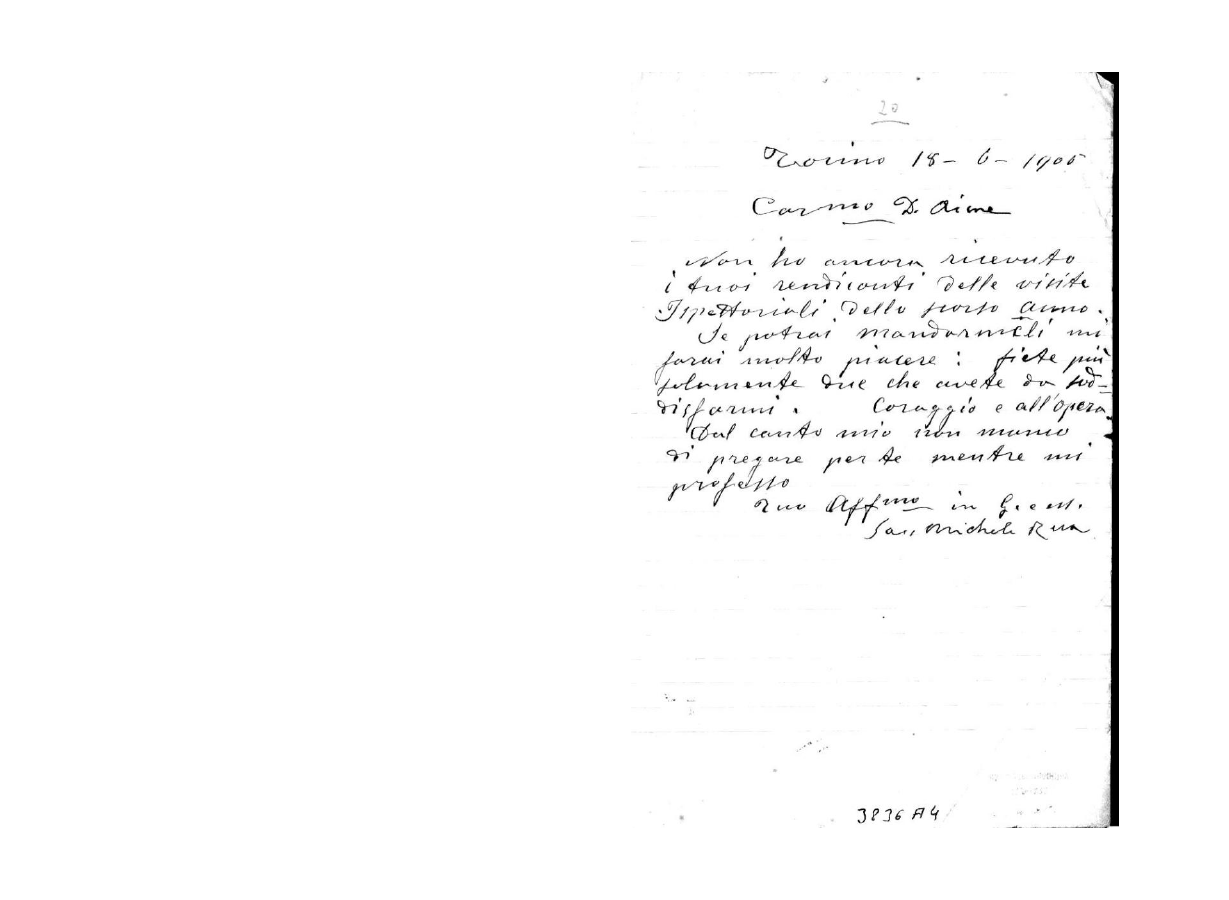 20
Torino 18 - 6 - 1905
Carmo D. Aime
Non ho ancora ricevuto
i tuoi rendiconti delle visite
Ispettoriali dello scorso anno.
Se potrai mandarmeli mi
farai molto piacere: siete più
solamente due che avete da sod-
disfarmi. Coraggio e all'opera.
Dal canto mio non manco
di pregare per te mentre mi
professo
Tuo Affmo in G. e M.
Sac. Michele Rua
3836 A4